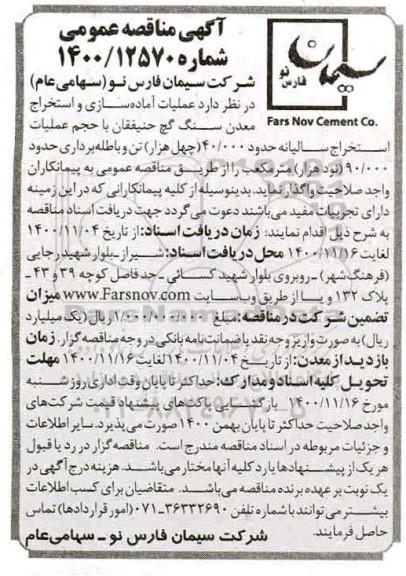 آگهی مناقصه عمومی
شماره ۱۴۰۰/۱۲۵۷۰
شرکت سیمان فارس نو (سهامی عام)
در نظر دارد عملیات آماده‌سازی و استخراج
معدن سنگ گچ حنیفقان با حجم عملیات
سیمان
فارس نو
Fars Nov Cement Co.
استخراج سالیانه حدود ۴۰/۰۰۰ (چهل هزار) تن و باطله‌برداری حدود
۹۰/۰۰۰ (نود هزار) مترمکعب را از طریق مناقصه عمومی به پیمانکاران
واجد صلاحیت واگذار نماید. بدینوسیله از کلیه پیمانکارانی که در این زمینه
دارای تجربیات مفید می‌باشند دعوت می‌گردد جهت دریافت اسناد مناقصه
به شرح ذیل اقدام نمایند: زمان دریافت اسناد: از تاریخ ۱۴۰۰/۱۱/۰۴
لغایت ۱۴۰۰/۱۱/۱۶ محل دریافت اسناد: شیراز ـ بلوار شهید رجایی
(فرهنگ شهر) ـ روبروی بلوار شهید کسائی ـ حد فاصل کوچه ۳۹ و ۴۳ ـ
پلاک ۱۳۲ و یا از طریق وب‌سایت www.Farsnov.com میزان
تضمین شرکت در مناقصه: مبلغ ۱/۰۰۰/۰۰۰/۰۰۰ ریال (یک میلیارد
ریال) به صورت واریز وجه نقد یا ضمانت‌نامه بانکی در وجه مناقصه گزار. زمان
بازدید از معدن: از تاریخ ۱۴۰۰/۱۱/۰۴ لغایت ۱۴۰۰/۱۱/۱۶ مهلت
تحویل کلیه اسناد و مدارک: حداکثر تا پایان وقت اداری روز شنبه
مورخ ۱۴۰۰/۱۱/۱۶ بازگشایی پاکت‌های پیشنهاد قیمت شرکت‌های
واجد صلاحیت حداکثر تا پایان بهمن ۱۴۰۰ صورت می‌پذیرد. سایر اطلاعات
و جزئیات مربوطه در اسناد مناقصه مندرج است. مناقصه گزار در رد یا قبول
هر یک از پیشنهادها یا رد کلیه آنها مختار می‌باشد. هزینه درج آگهی در
یک نوبت بر عهده برنده مناقصه می‌باشد. متقاضیان برای کسب اطلاعات
بیشتر می‌توانند با شماره تلفن ۳۶۳۳۲۶۹۰-۰۷۱ (امور قراردادها) تماس
حاصل فرمایند.
شرکت سیمان فارس نو ـ سهامی عام